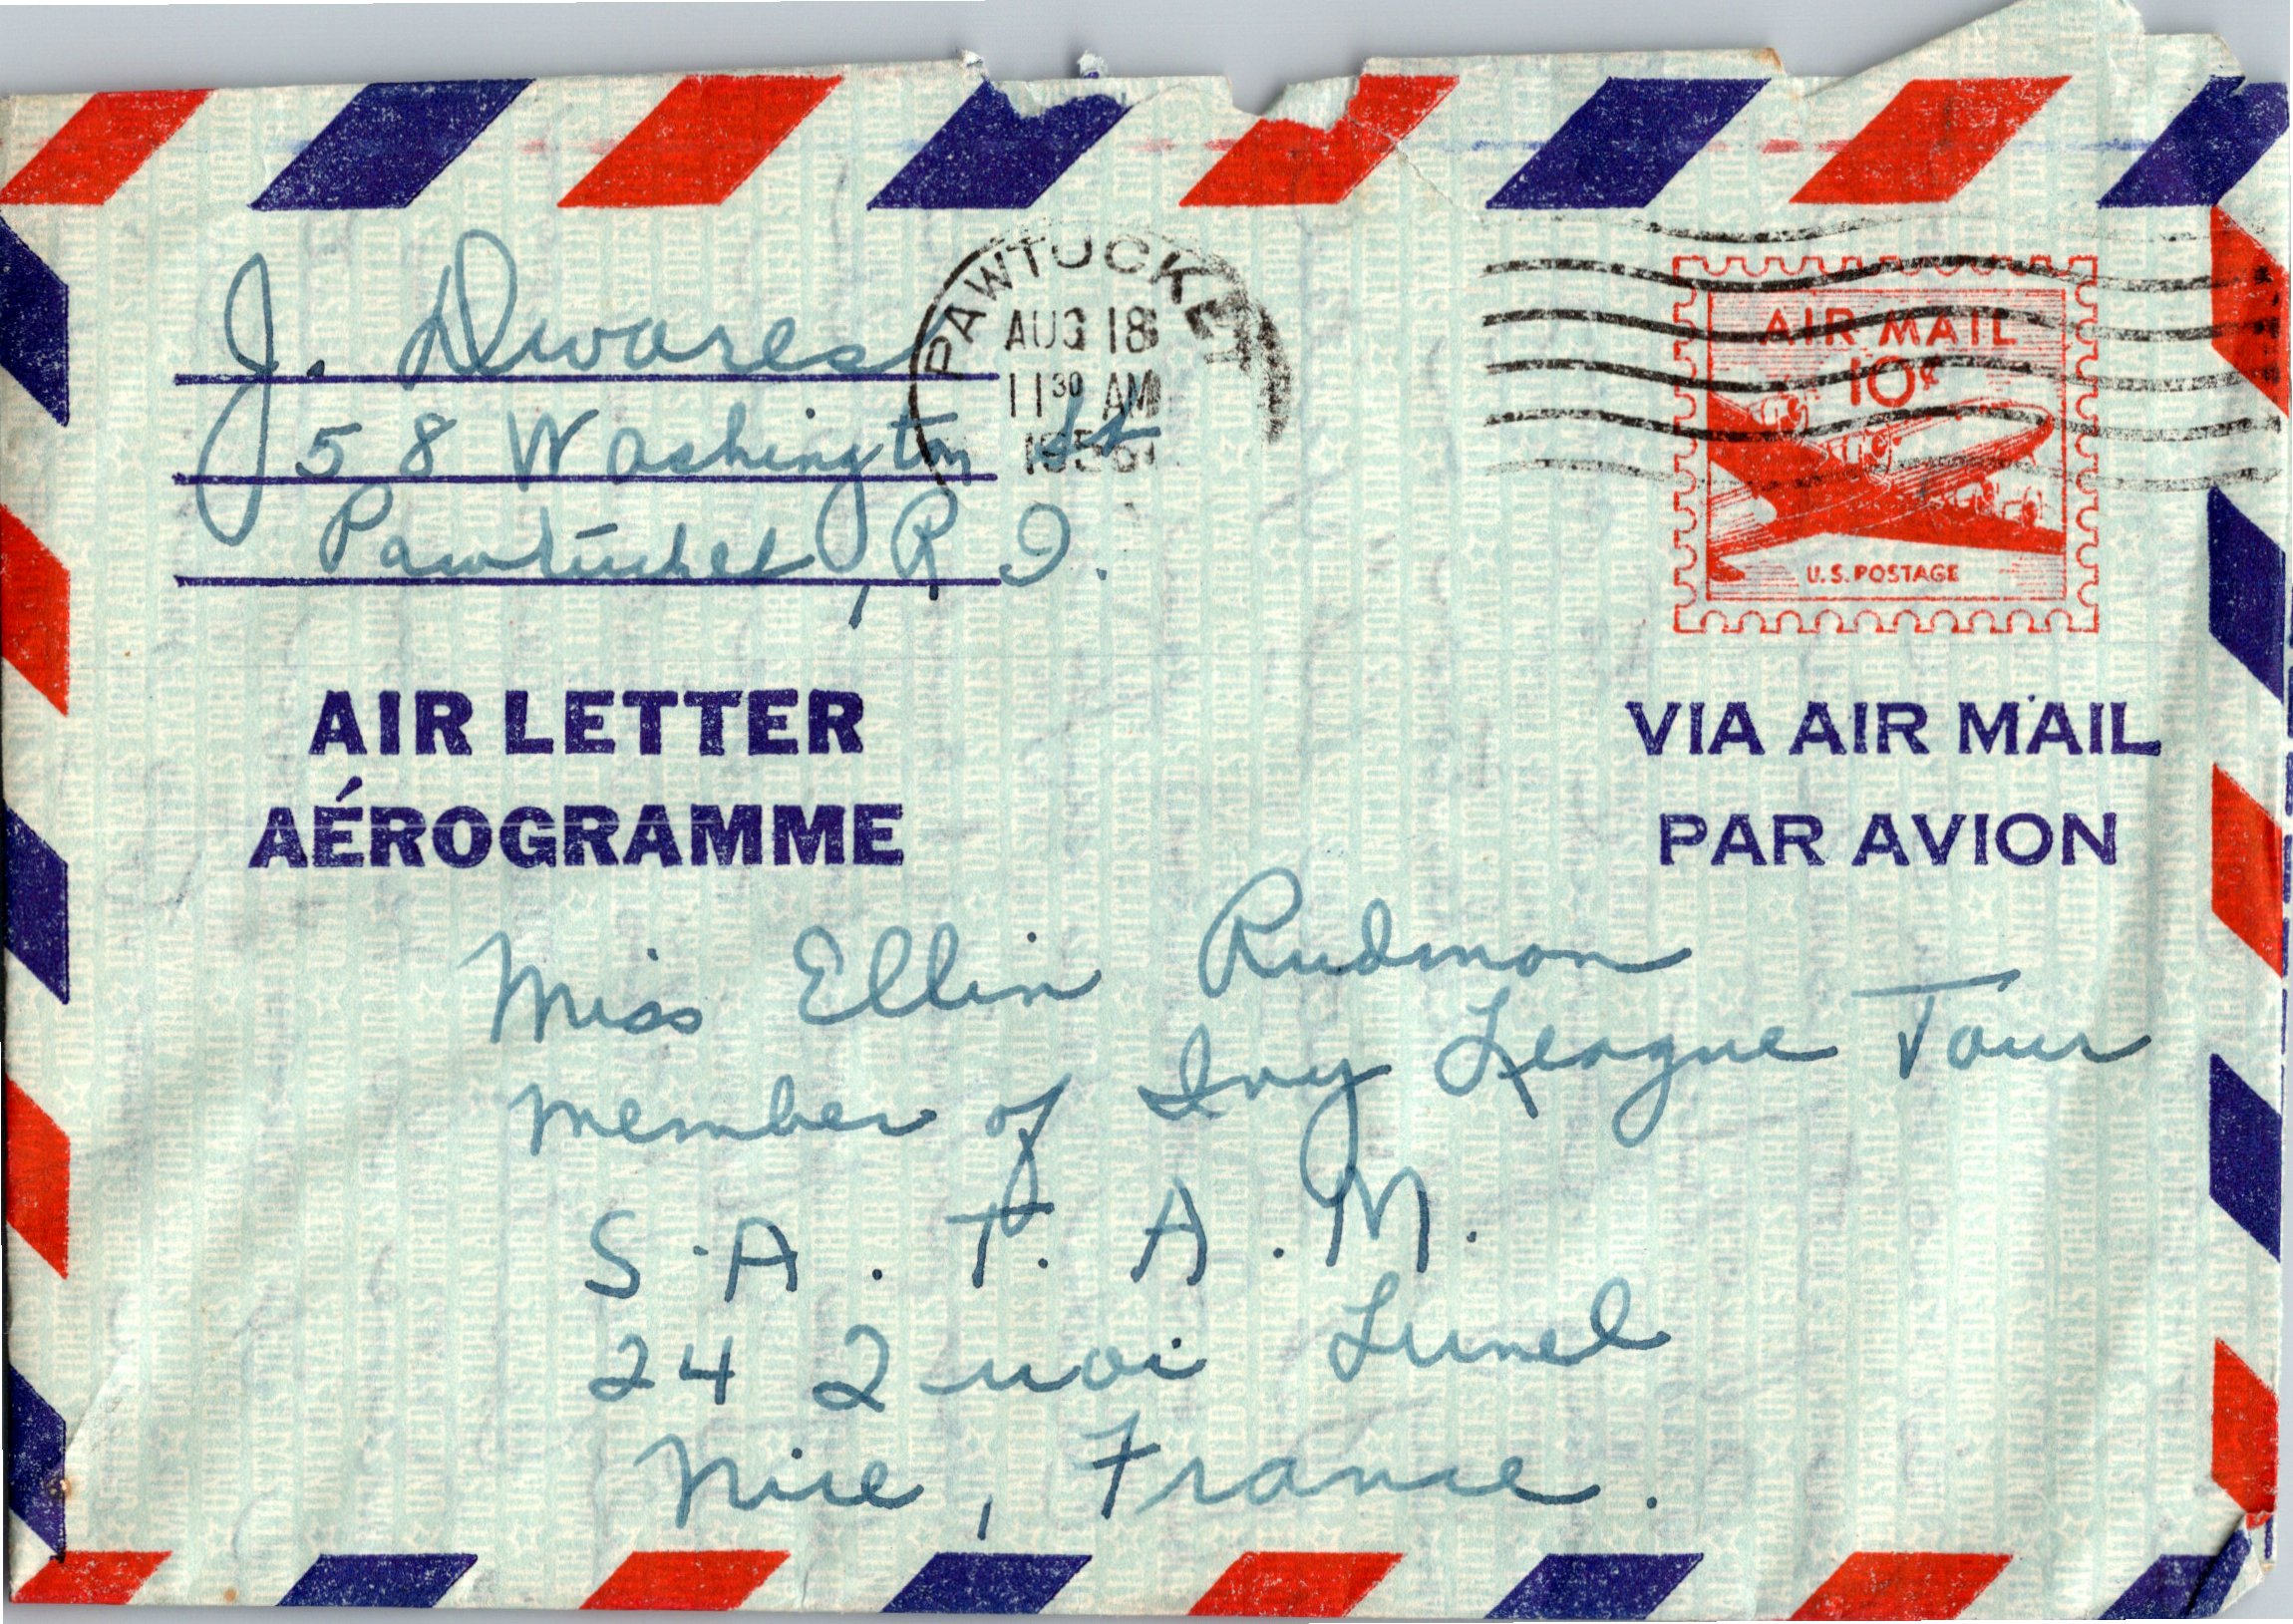 J. Dwares
58 Washington St
Pawtucket, R.I.
PAWTUCKET
AUG 18
11 30 AM
AIR MAIL
10¢
U.S. POSTAGE
AIR LETTER
AÉROGRAMME
VIA AIR MAIL
PAR AVION
Miss Ellin Rudman
Member of Ivy League Tour
S.A.T.A.M.
24 Quai Lunel
Nice, France.